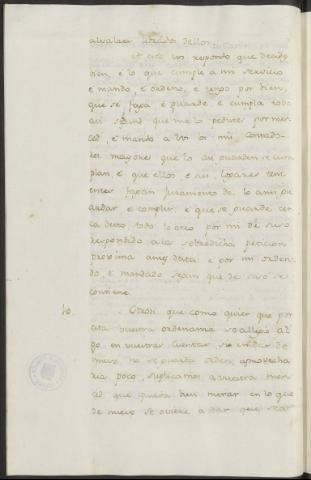 alvalaes librados dellos
A esto vos respondo que desides
bien, e lo que cumple a mi servicio
e mando, e ordeno, e tengo por bien,
que se faga e guarde, e cumpla todo
asi segund que me lo pedistes por mer
ced, e mando a los mis Contado-
res mayores que lo asi guarden, e cum
plan, e que ellos, e sus logares teni
entes fagan juramento de lo ansi gu
ardar, e complir, e que se guarde cer
ca desto, todo lo otro por mi de suso
respondido a la sobredicha peticion
proxima antes desta e por mi ordena
do, e mandado segun que de suso se
contiene.
10. Otrosi que como quier que por
esta vuestra ordenanza se atajó al
go en vuestras Cuentas, si en el dar de
nuevo no se guarda orden, aprovecha
ria poco, suplicamos a vuestra mer
ced que quiera bien mirar en lo que
de nuevo se oviere a dar que sea